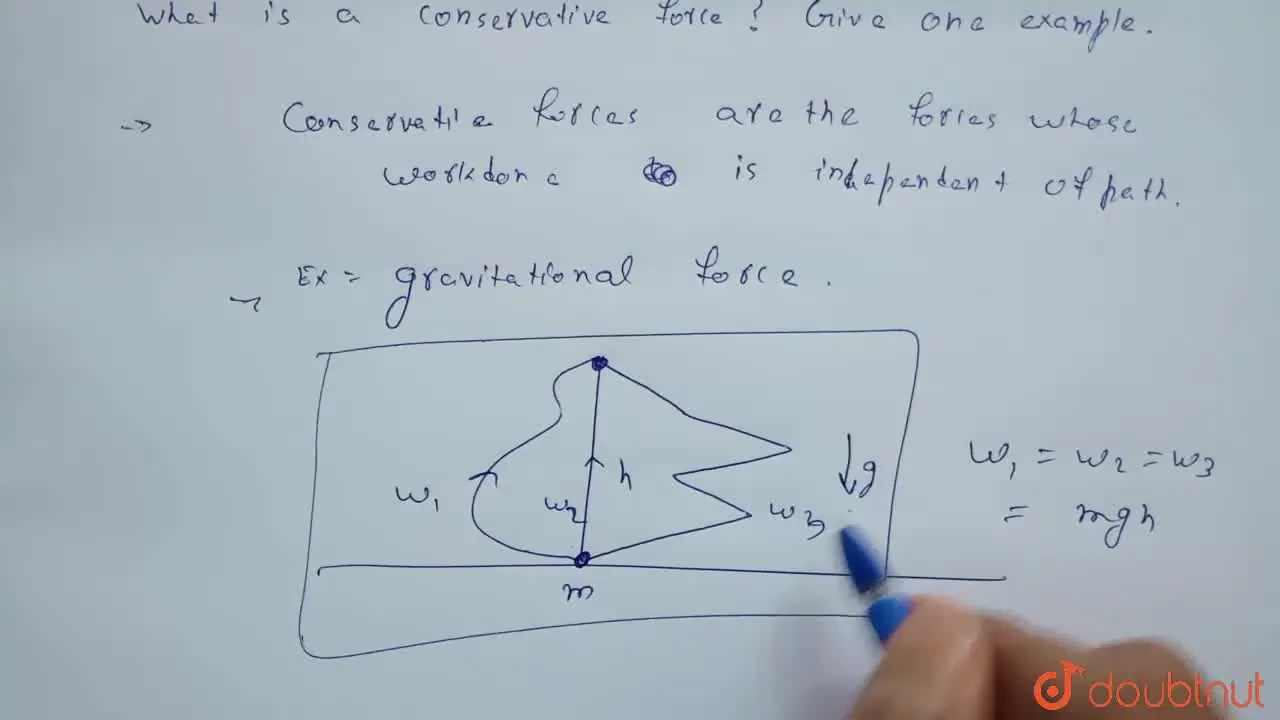 What is a conservative force? Give one example.
→ Conservative forces are the forces whose
workdone is independent of path.
→ Ex = gravitational force.
W1
W2
h
W3
↓g
m
W1 = W2 = W3
= mgh
doubtnut